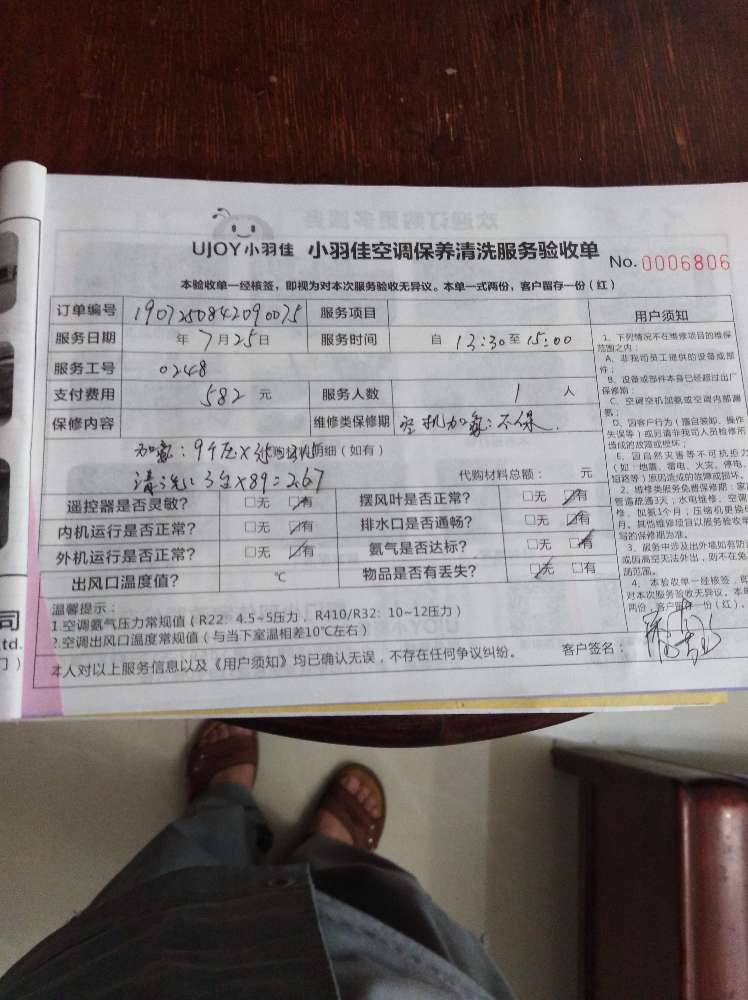 UJOY小羽佳 小羽佳空调保养清洗服务验收单 No.0006806
本验收单一经核签，即视为对本次服务验收无异议。本单一式两份，客户留存一份（红）
订单编号 1907250842090075 服务项目
服务日期 年7月25日 服务时间 自13:30至15:00
服务工号 0248
支付费用 582元 服务人数 1人
保修内容 维修类保修期 空机加氨：不保
加氨：9个压×35 明细（如有）
清洗：3台×89=267
代购材料总额： 元
遥控器是否灵敏？ □无 ☑有 摆风叶是否正常？ □无 ☑有
内机运行是否正常？ □无 ☑有 排水口是否通畅？ □无 ☑有
外机运行是否正常？ □无 ☑有 氨气是否达标？ □无 ☑有
出风口温度值？ ℃ 物品是否有丢失？ ☑无 □有
温馨提示：
1.空调氨气压力常规值（R22：4.5~5压力、R410/R32：10~12压力）
2.空调出风口温度常规值（与当下室温相差10℃左右）
本人对以上服务信息以及《用户须知》均已确认无误，不存在任何争议纠纷。 客户签名：
用户须知
1、下列情况不在维修项目的维保
范围之内：
A、非我司员工提供的设备或部
件；
B、设备或部件本身已经超过出厂
保修期；
C、空调空机加氨或空调内部漏
氨；
D、因客户行为（擅自装卸、操作
失误等）或另请非我司人员检修所
造成的故障或损坏；
E、因自然灾害等不可抗拒力
（如：地震、雷电、火灾、停电、
短路等）原因造成的故障或损坏。
2、维修类服务免费保修期：家
管道疏通3天；水电维修、空调
修、加氨1个月；压缩机更换
月。其他维修项目以服务验收
写的保修期为准。
3、服务中涉及出外墙如有防
或因高空无法外出，则不在免
范围。
4、本验收单一经核签，即
对本次服务验收无异议。本单
两份，客户留存一份（红）。
司
td.
门）